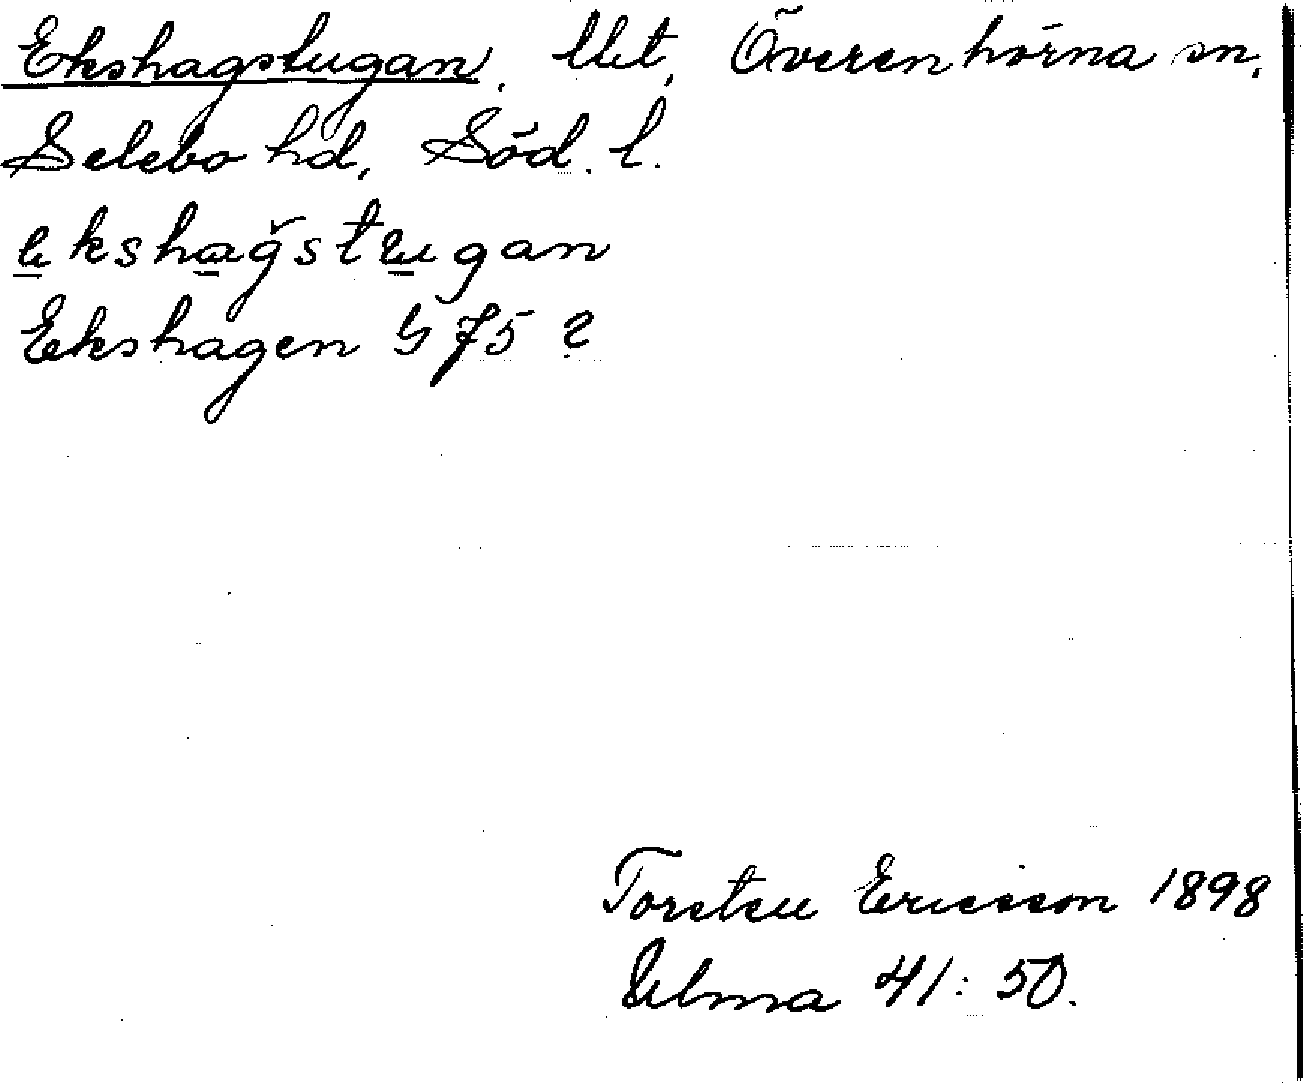 Ekshagstugan, lht, Överenhörna sn,
Selebo hd, Söd. l.
ekshağstugan
Ekshagen G 75 ?
Torsten Ericsson 1898
Ulma 41: 50.